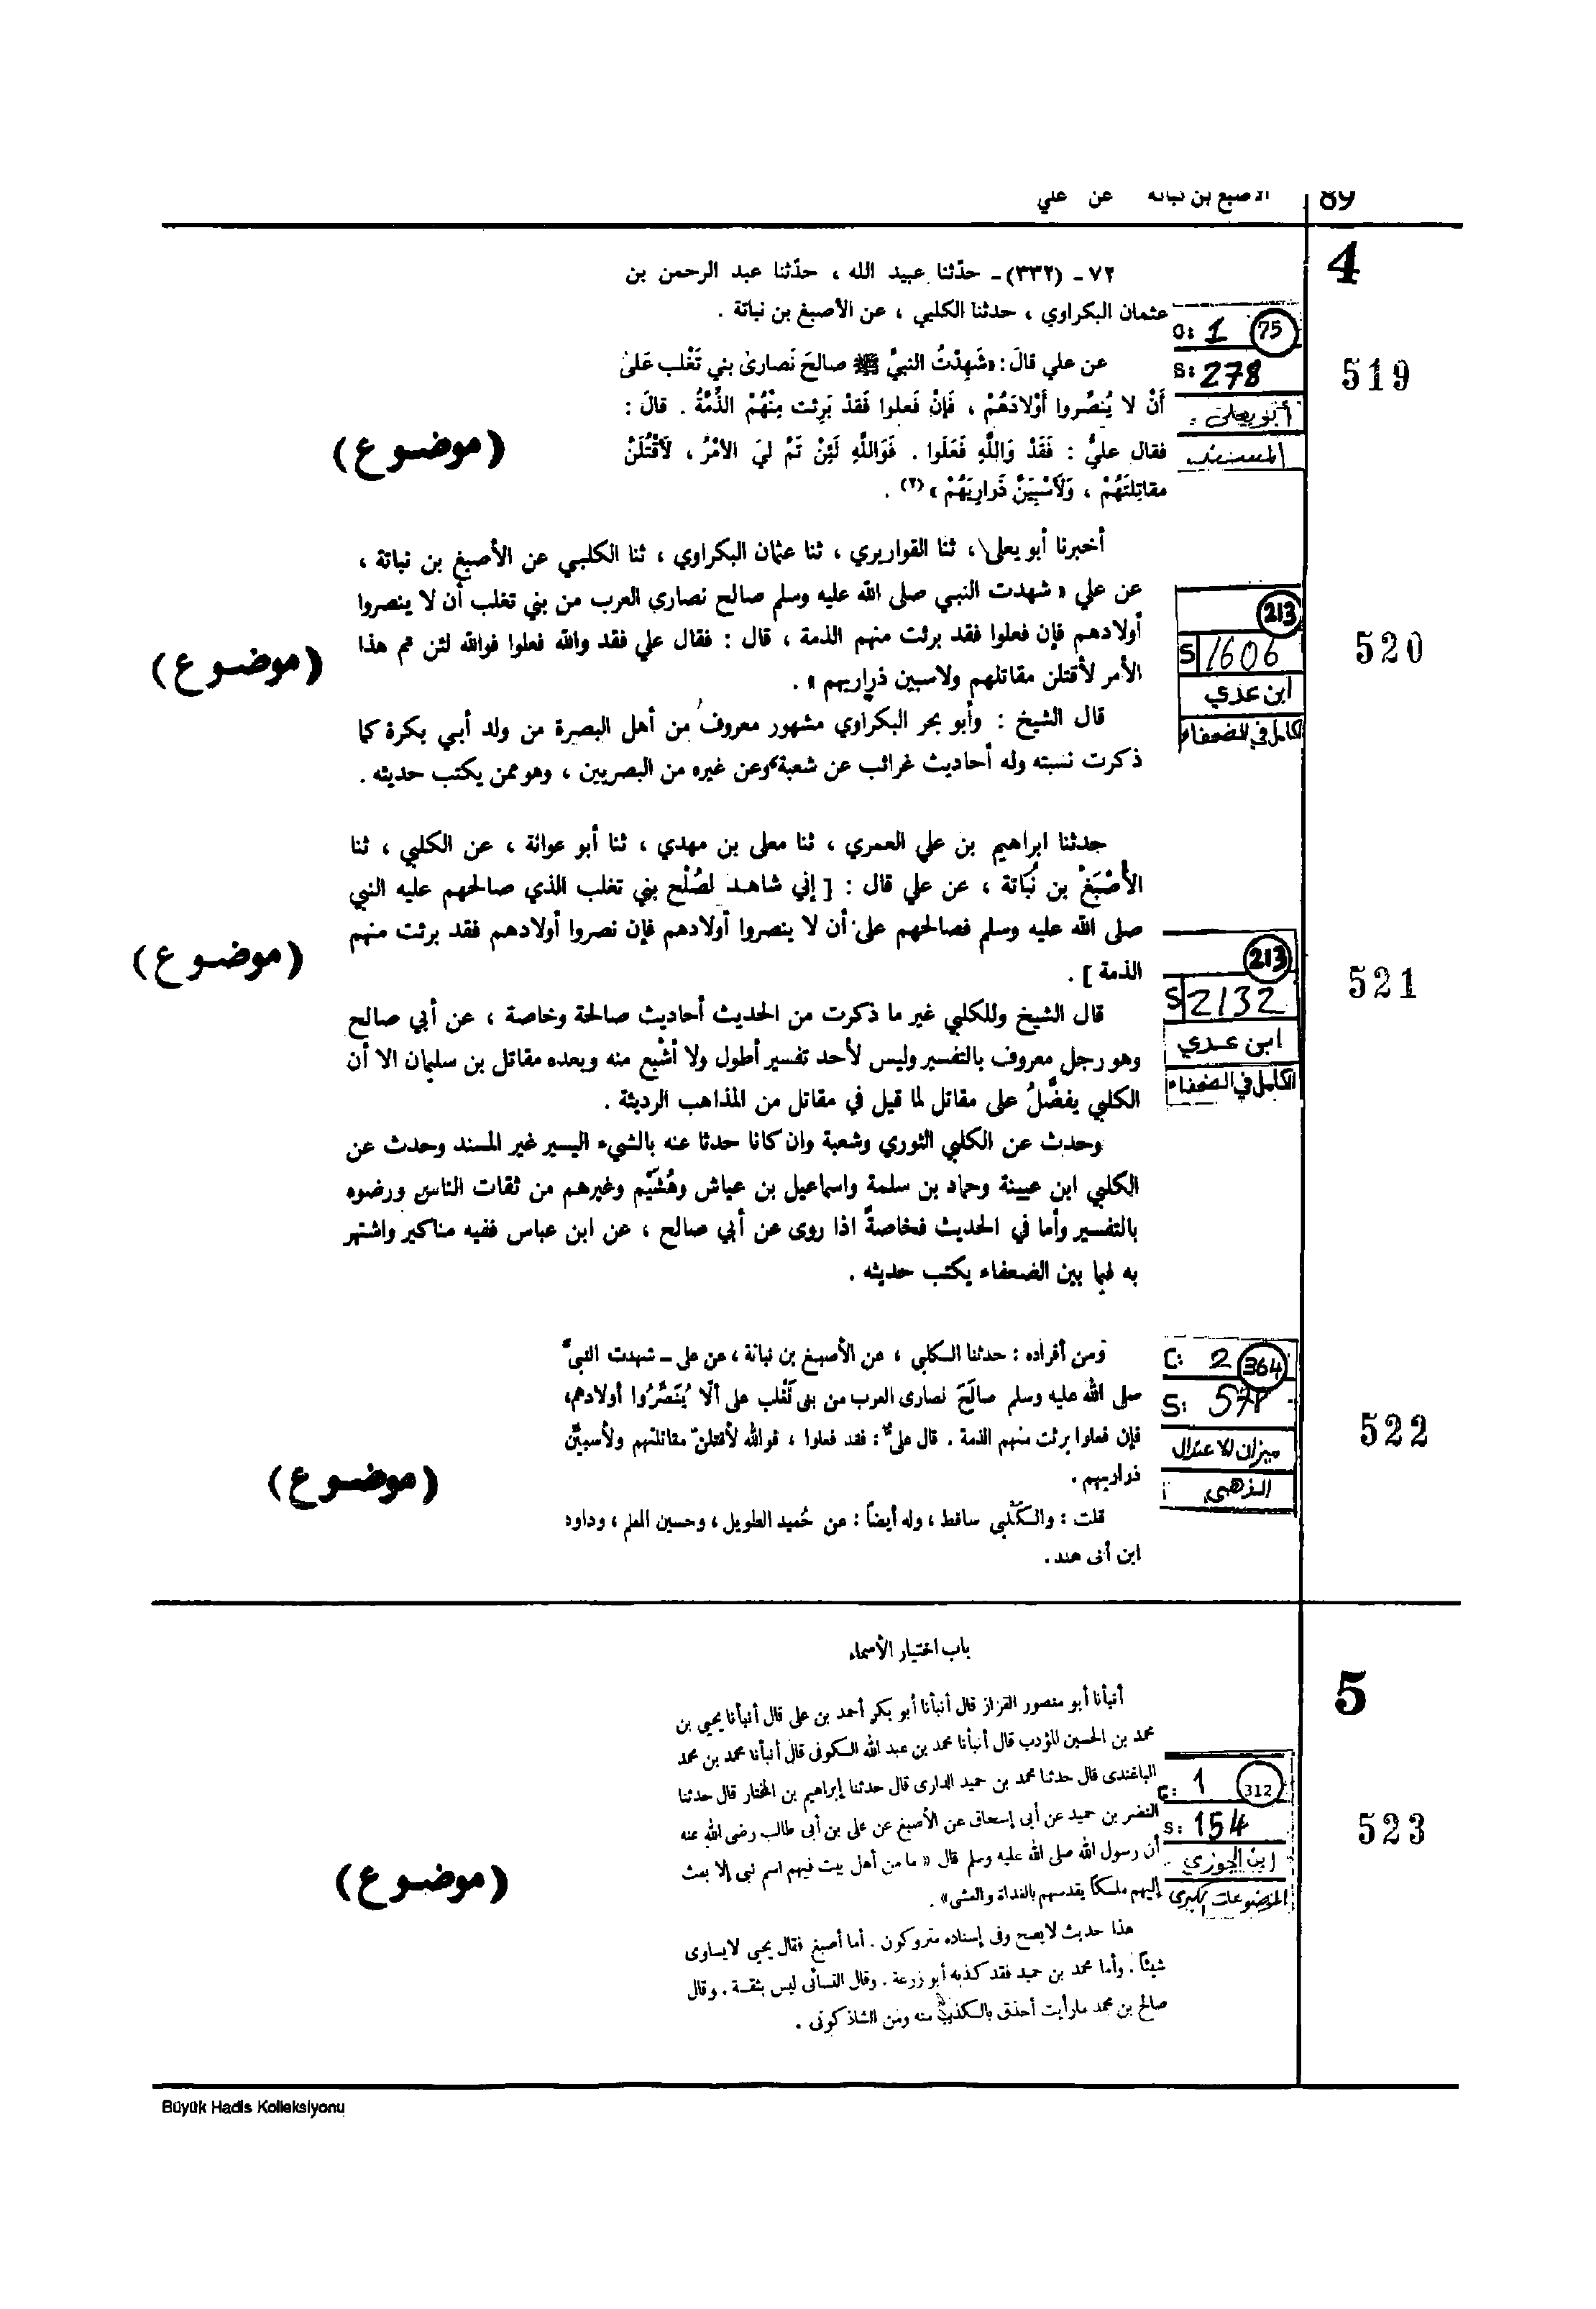 89
الأصبغ بن نباتة عن علي
4
٧٢ - (٣٣٢) - حدّثنا عبيد الله ، حدّثنا عبد الرحمن بن
عثمان البكراوي ، حدثنا الكلبي ، عن الأصبغ بن نباتة .
عن علي قالَ : «شَهِدْتُ النبيَّ ﷺ صالحَ نَصارىٰ بني تَغْلب عَلىٰ
أَنْ لا يُنصِّروا أَوْلادَهُمْ ، فَإِنْ فَعلوا فَقدْ بَرِئت مِنْهُمْ الذِّمَّةُ . قالَ :
فقال عليٌّ : فَقَدْ وَاللَّهِ فَعَلَوا . فَوَاللَّهِ لَئِنْ تَمَّ ليَ الأمْرُ ، لَأَقْتُلَنَّ
مقاتِلَتَهُمْ ، وَلَأَسْبِيَنَّ ذَرارِيَهُمْ» (٢) .
(موضوع)
75
C: 1
S: 278
أبو يعلى
المسند
519
أخبرنا أبو يعلى ، ثنا القواريري ، ثنا عثمان البكراوي ، ثنا الكلبي عن الأصبغ بن نباتة ،
عن علي « شهدت النبي صلى الله عليه وسلم صالح نصارى العرب من بني تغلب أن لا ينصروا
أولادهم فإن فعلوا فقد برئت منهم الذمة ، قال : فقال علي فقد والله فعلوا فوالله لئن تم هذا
الأمر لأقتلن مقاتلهم ولاسبين ذراريهم » .
قال الشيخ : وأبو بحر البكراوي مشهور معروف من أهل البصرة من ولد أبي بكرة كما
ذكرت نسبته وله أحاديث غرائب عن شعبة وعن غيره من البصريين ، وهو ممن يكتب حديثه .
(موضوع)
213
S 1606
ابن عدي
الكامل في الضعفاء
520
حدثنا ابراهيم بن علي العمري ، ثنا معلى بن مهدي ، ثنا أبو عوانة ، عن الكلبي ، ثنا
الأَصْبَغْ بن نُبَاتة ، عن علي قال : [ إني شاهد لصُلْح بني تغلب الذي صالحهم عليه النبي
صلى الله عليه وسلم فصالحهم على أن لا ينصروا أولادهم فإن نصروا أولادهم فقد برئت منهم
الذمة ] .
قال الشيخ وللكلبي غير ما ذكرت من الحديث أحاديث صالحة وخاصة ، عن أبي صالح
وهو رجل معروف بالتفسير وليس لأحد تفسير أطول ولا أشبع منه وبعده مقاتل بن سليمان الا أن
الكلبي يفضَّلُ على مقاتل لما قيل في مقاتل من المذاهب الرديئة .
وحدث عن الكلبي الثوري وشعبة وان كانا حدثا عنه بالشيء اليسير غير المسند وحدث عن
الكلبي ابن عيينة وحماد بن سلمة واسماعيل بن عياش وهُشَيْم وغيرهم من ثقات الناس ورضوه
بالتفسير وأما في الحديث فخاصةً اذا روى عن أبي صالح ، عن ابن عباس ففيه مناكير واشتهر
به فيما بين الضعفاء يكتب حديثه .
(موضوع)
213
S 2132
ابن عدي
الكامل في الضعفاء
521
ومن أفراده : حدثنا الكلبي ، عن الأصبغ بن نباتة ، عن على - شهدت النبيَّ
صلى الله عليه وسلم صالَحَ نصارى العرب من بنى تَغْلب على ألّا يُنَصِّرُوا أولادهم،
فإن فعلوا برئت منهم الذمة . قال علىٌّ : فقد فعلوا ، فوالله لأقتلنّ مقاتلتهم ولأسبينّ
ذراريهم .
قلت : والكَلْبى ساقط ، وله أيضاً : عن حُميد الطويل ، وحسين المعلم ، وداود
ابن أبى هند .
(موضوع)
364
C: 2
S: 578
ميزان الاعتدال
الذهبي
522
5
باب اختيار الأسماء
أنبأنا أبو منصور القزاز قال أنبأنا أبو بكر أحمد بن على قال أنبأنا يحيى بن
محمد بن الحسين المؤدب قال أنبأنا محمد بن عبد الله السكونى قال أنبأنا محمد بن محمد
الباغندى قال حدثنا محمد بن حميد الدارى قال حدثنا إبراهيم بن المختار قال حدثنا
النضر بن حميد عن أبى إسحاق عن الأصبغ عن على بن أبى طالب رضى الله عنه
أن رسول الله صلى الله عليه وسلم قال « ما من أهل بيت فيهم اسم نبى إلا بعث
إليهم ملكاً يقدسهم بالغداة والعشى» .
هذا حديث لايصح وفى إسناده متروكون . أما أصبغ فقال يحيى لايساوى
شيئاً . وأما محمد بن حميد فقد كذبه أبو زرعة . وقال النسائى ليس بثقة . وقال
صالح بن محمد مارأيت أحذق بالكذب منه ومن الشاذكونى .
(موضوع)
312
C: 1
S: 154
ابن الجوزي
الموضوعات الكبرى
523
Büyük Hadis Kolleksiyonu